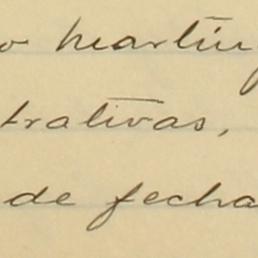 o Martin
trativas,
de fecha